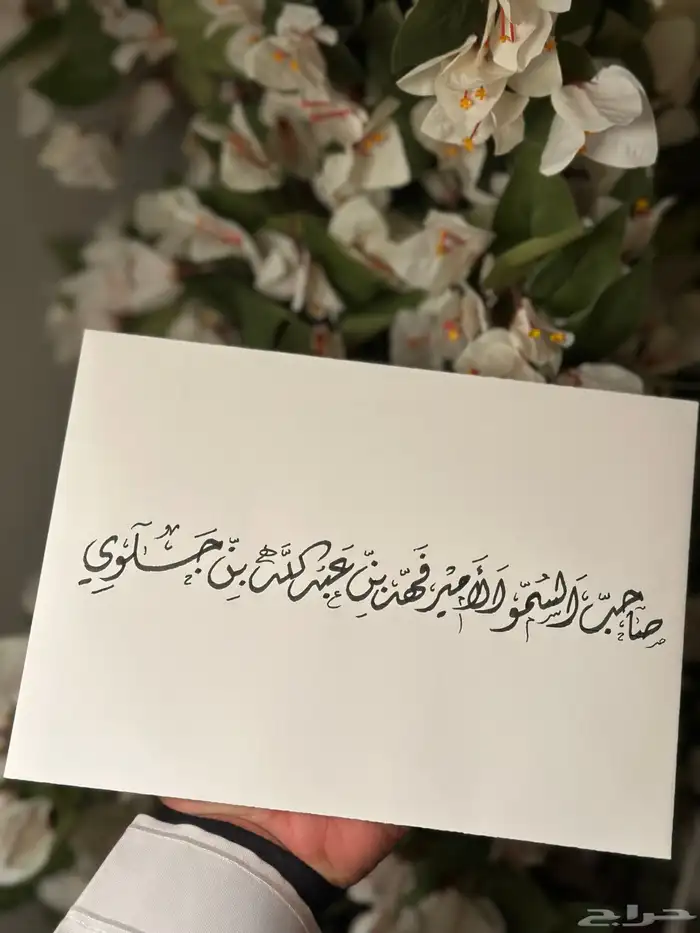 صاحب السمو الأمير فهد بن عبدالله بن جلوي
حراج